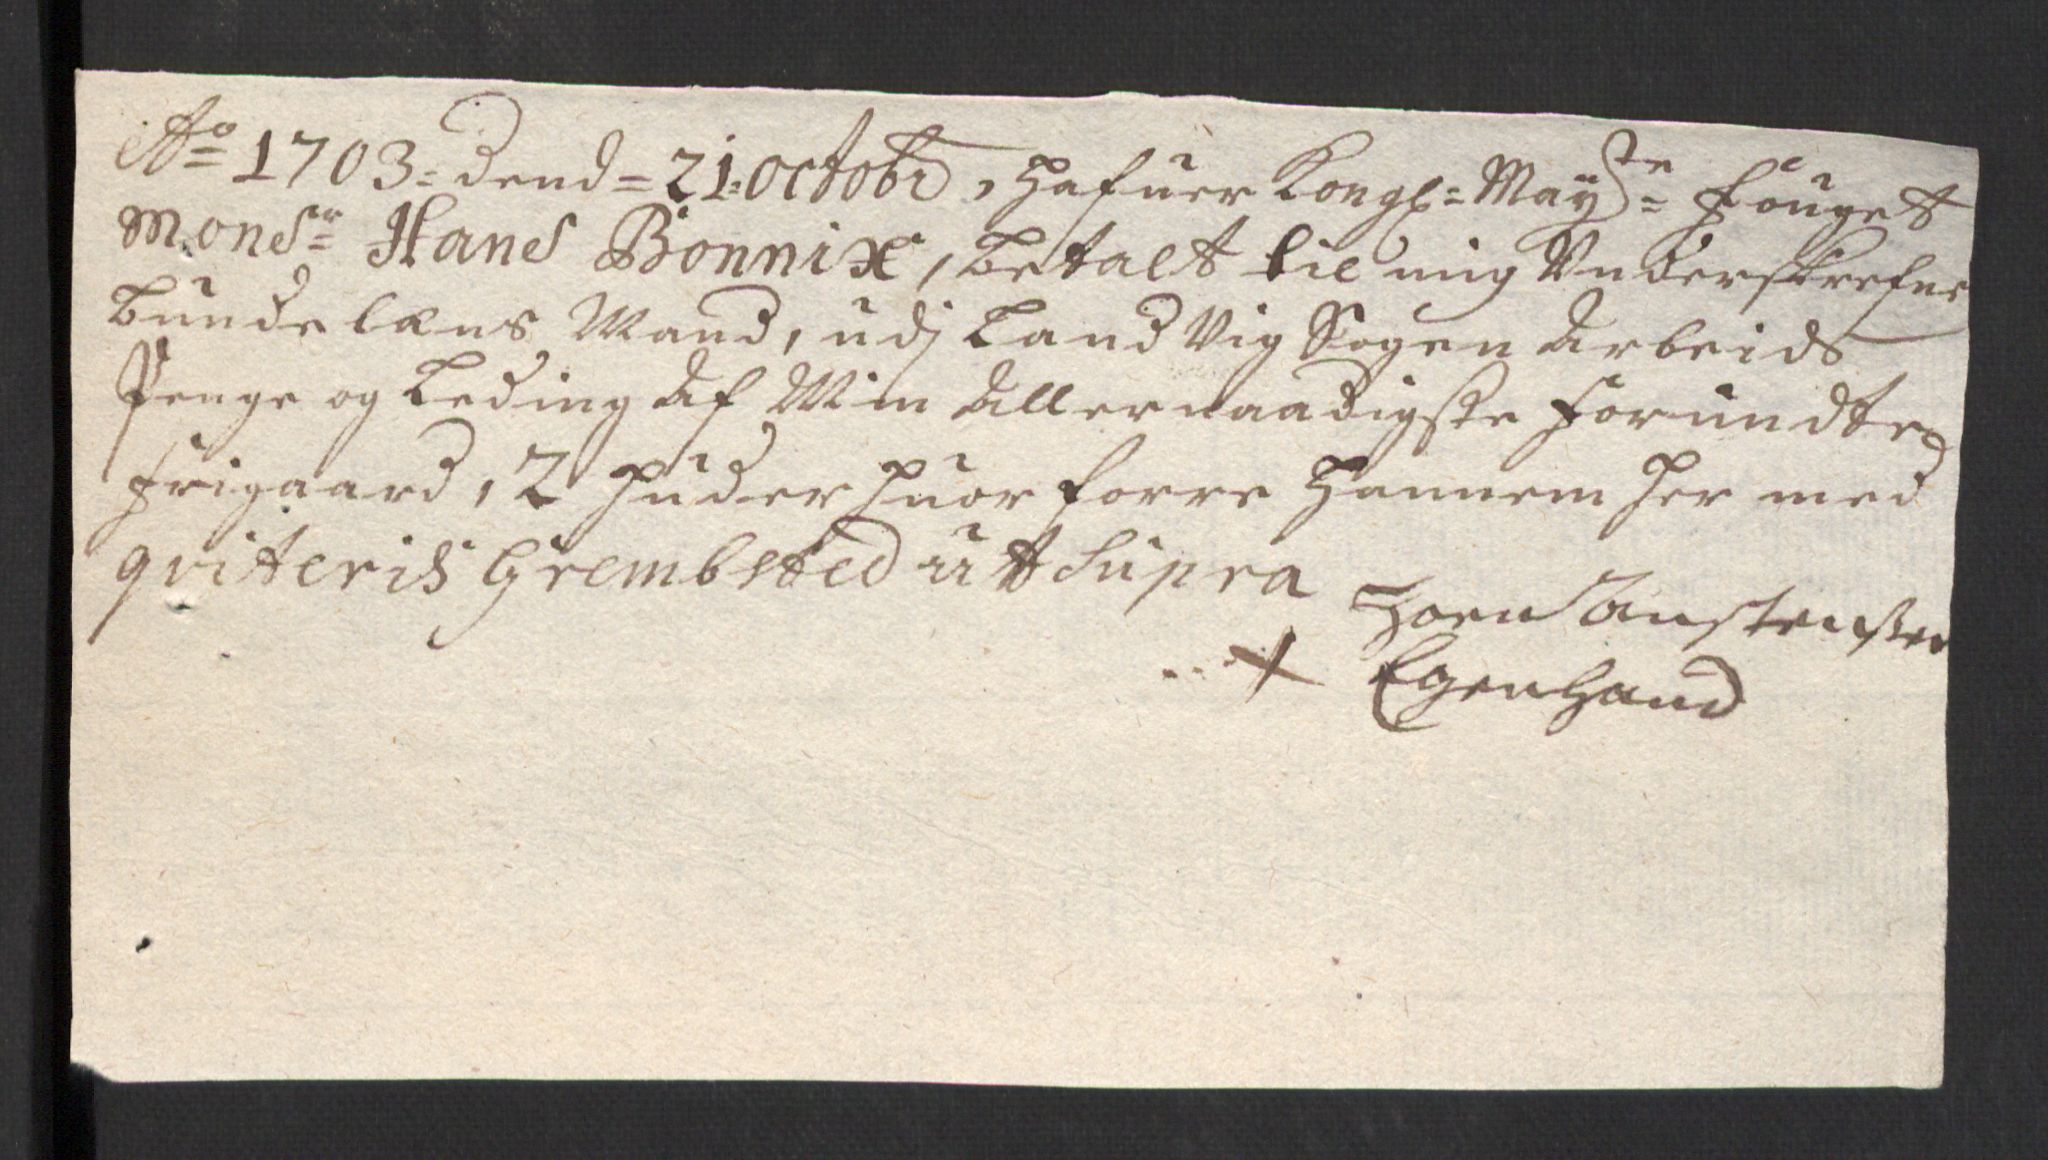 Ao 1703. dend = 21. octobr, Hafuer Kongl: May:ts Fougett
Monsr Hans Bonnix, betalt til mig Underskrefne
bunde lens Mand, udj Land Vig Sogen Arbeids
Penge og Leding af Min Allernaadigste forundte
frigaard, 2 Huder huor forre Hannem her med
qviteris Grembsted utt Supra
Egenhand